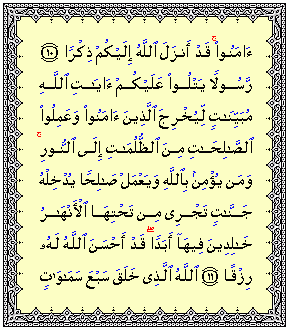 ءَامَنُوا۟ ۚ قَدْ أَنزَلَ ٱللَّهُ إِلَيْكُمْ ذِكْرًا ۝١٠
رَّسُولًا يَتْلُوا۟ عَلَيْكُمْ ءَايَـٰتِ ٱللَّهِ
مُبَيِّنَـٰتٍ لِّيُخْرِجَ ٱلَّذِينَ ءَامَنُوا۟ وَعَمِلُوا۟
ٱلصَّـٰلِحَـٰتِ مِنَ ٱلظُّلُمَـٰتِ إِلَى ٱلنُّورِ ۚ
وَمَن يُؤْمِنۢ بِٱللَّهِ وَيَعْمَلْ صَـٰلِحًا يُدْخِلْهُ
جَنَّـٰتٍ تَجْرِى مِن تَحْتِهَا ٱلْأَنْهَـٰرُ
خَـٰلِدِينَ فِيهَآ أَبَدًا ۖ قَدْ أَحْسَنَ ٱللَّهُ لَهُۥ
رِزْقًا ۝١١ ٱللَّهُ ٱلَّذِى خَلَقَ سَبْعَ سَمَـٰوَٰتٍ